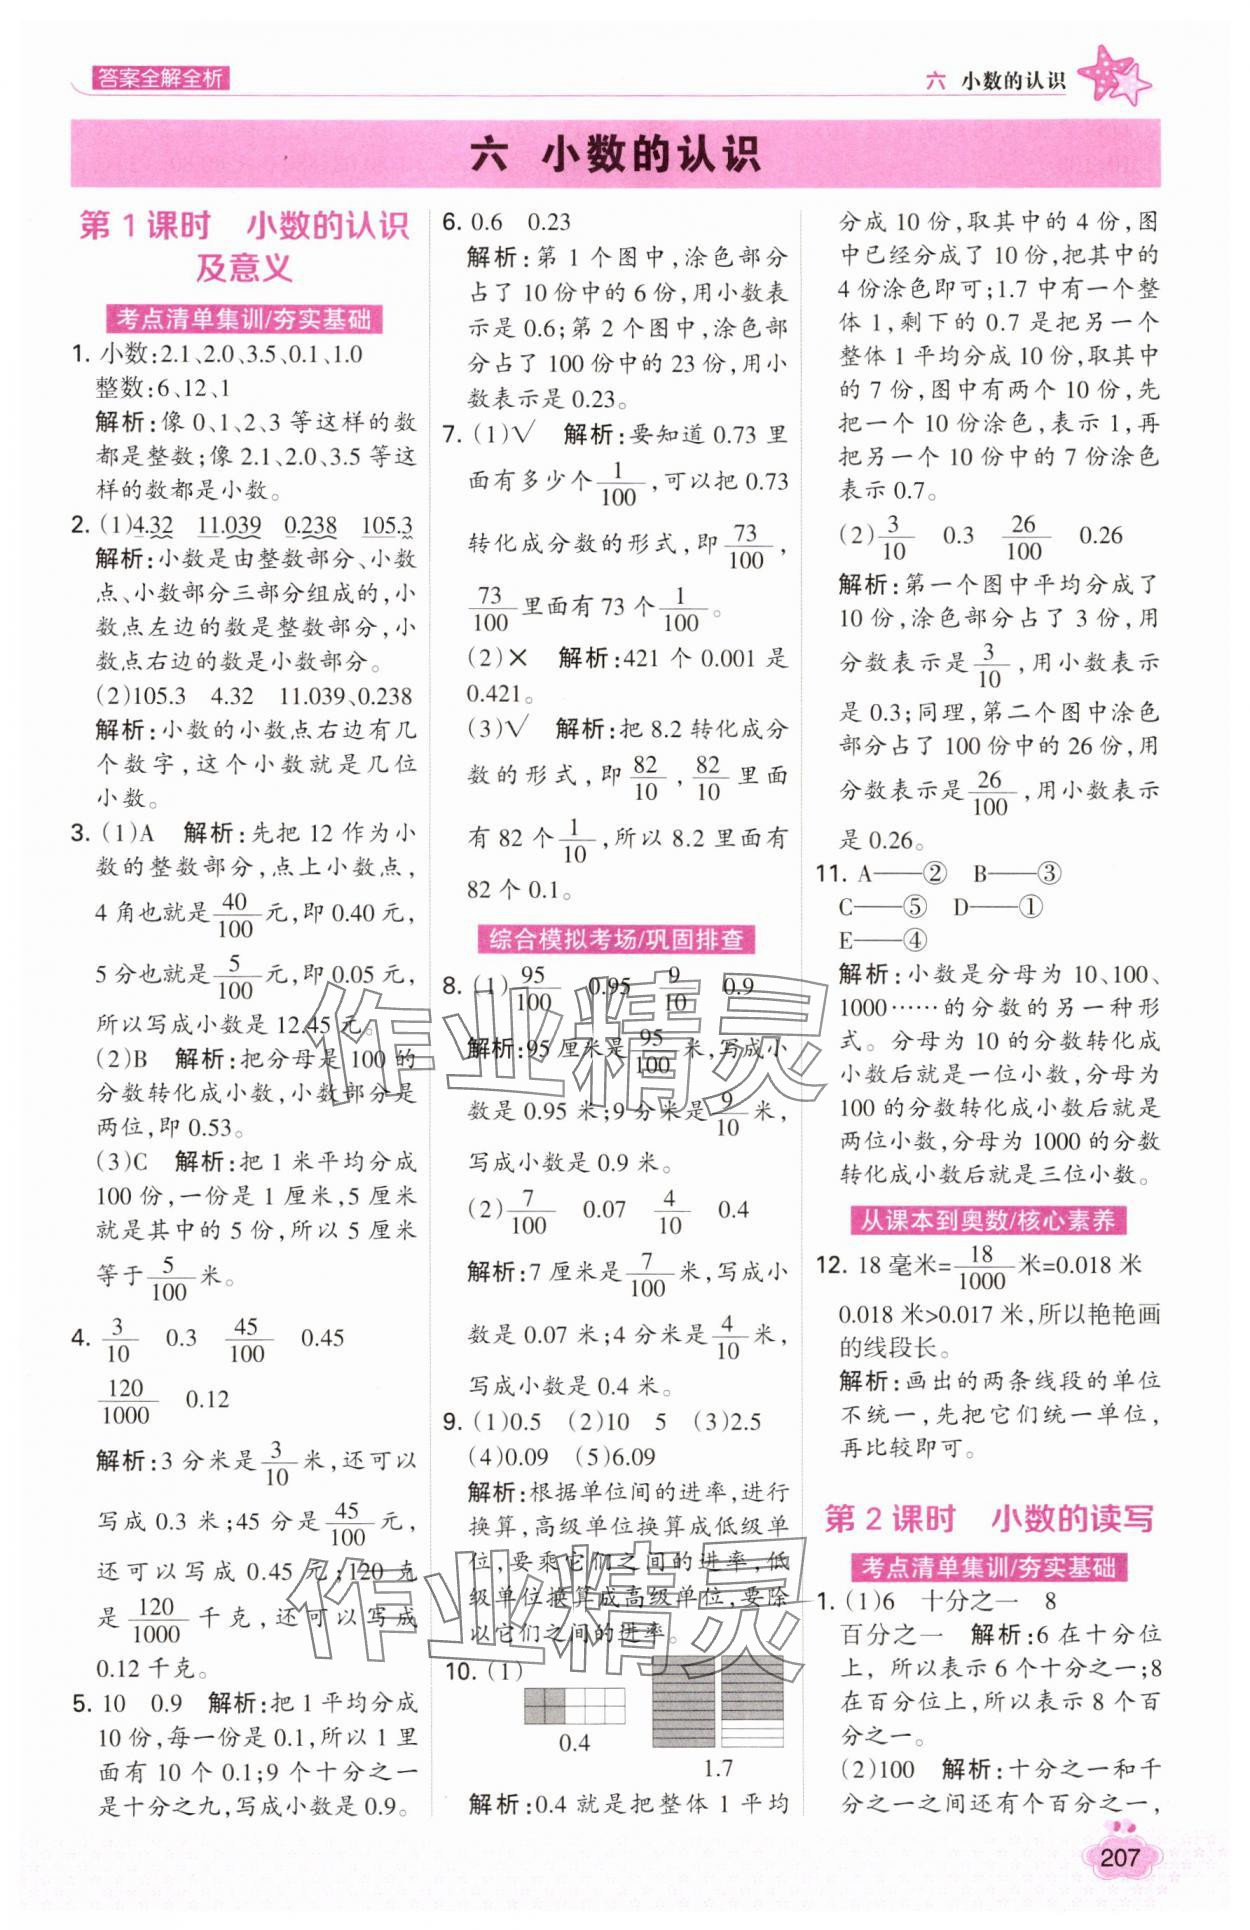 答案全解全析
六 小数的认识
六 小数的认识
第 1 课时 小数的认识
及意义
考点清单集训/夯实基础
1. 小数:2.1、2.0、3.5、0.1、1.0
整数:6、12、1
解析:像 0、1、2、3 等这样的数
都是整数;像 2.1、2.0、3.5 等这
样的数都是小数。
2. (1)4.32 11.039 0.238 105.3
解析:小数是由整数部分、小数
点、小数部分三部分组成的,小
数点左边的数是整数部分,小
数点右边的数是小数部分。
(2)105.3 4.32 11.039、0.238
解析:小数的小数点右边有几
个数字,这个小数就是几位
小数。
3. (1)A 解析:先把 12 作为小
数的整数部分,点上小数点,
4 角也就是 40/100 元,即 0.40 元,
5 分也就是 5/100 元,即 0.05 元,
所以写成小数是 12.45 元。
(2)B 解析:把分母是 100 的
分数转化成小数,小数部分是
两位,即 0.53。
(3)C 解析:把 1 米平均分成
100 份,一份是 1 厘米,5 厘米
就是其中的 5 份,所以 5 厘米
等于 5/100 米。
4. 3/10 0.3 45/100 0.45
120/1000 0.12
解析:3 分米是 3/10 米,还可以
写成 0.3 米;45 分是 45/100 元,
还可以写成 0.45 元;120 克
是 120/1000 千克,还可以写成
0.12 千克。
5. 10 0.9 解析:把 1 平均分成
10 份,每一份是 0.1,所以 1 里
面有 10 个 0.1;9 个十分之一
是十分之九,写成小数是 0.9。
6. 0.6 0.23
解析:第 1 个图中,涂色部分
占了 10 份中的 6 份,用小数表
示是 0.6;第 2 个图中,涂色部
分占了 100 份中的 23 份,用小
数表示是 0.23。
7. (1)√ 解析:要知道 0.73 里
面有多少个 1/100,可以把 0.73
转化成分数的形式,即 73/100,
73/100 里面有 73 个 1/100。
(2)× 解析:421 个 0.001 是
0.421。
(3)√ 解析:把 8.2 转化成分
数的形式,即 82/10,82/10 里面
有 82 个 1/10,所以 8.2 里面有
82 个 0.1。
综合模拟考场/巩固排查
8. (1) 95/100 0.95 9/10 0.9
解析:95 厘米是 95/100 米,写成小
数是 0.95 米;9 分米是 9/10 米,
写成小数是 0.9 米。
(2) 7/100 0.07 4/10 0.4
解析:7 厘米是 7/100 米,写成小
数是 0.07 米;4 分米是 4/10 米,
写成小数是 0.4 米。
9. (1)0.5 (2)10 5 (3)2.5
(4)0.09 (5)6.09
解析:根据单位间的进率,进行
换算,高级单位换算成低级单
位,要乘它们之间的进率,低
级单位换算成高级单位,要除
以它们之间的进率。
10. (1)
0.4
1.7
解析:0.4 就是把整体 1 平均
分成 10 份,取其中的 4 份,图
中已经分成了 10 份,把其中的
4 份涂色即可;1.7 中有一个整
体 1,剩下的 0.7 是把另一个
整体 1 平均分成 10 份,取其中
的 7 份,图中有两个 10 份,先
把一个 10 份涂色,表示 1,再
把另一个 10 份中的 7 份涂色
表示 0.7。
(2) 3/10 0.3 26/100 0.26
解析:第一个图中平均分成了
10 份,涂色部分占了 3 份,用
分数表示是 3/10,用小数表示
是 0.3;同理,第二个图中涂色
部分占了 100 份中的 26 份,用
分数表示是 26/100,用小数表示
是 0.26。
11. A——② B——③
C——⑤ D——①
E——④
解析:小数是分母为 10、100、
1000……的分数的另一种形
式。分母为 10 的分数转化成
小数后就是一位小数,分母为
100 的分数转化成小数后就是
两位小数,分母为 1000 的分数
转化成小数后就是三位小数。
从课本到奥数/核心素养
12. 18 毫米=18/1000 米=0.018 米
0.018 米>0.017 米,所以艳艳画
的线段长。
解析:画出的两条线段的单位
不统一,先把它们统一单位,
再比较即可。
第 2 课时 小数的读写
考点清单集训/夯实基础
1. (1)6 十分之一 8
百分之一 解析:6 在十分位
上, 所以表示 6 个十分之一;8
在百分位上,所以表示 8 个百
分之一。
(2)100 解析:十分之一和千
分之一之间还有个百分之一,
207
作业精灵
作业精灵